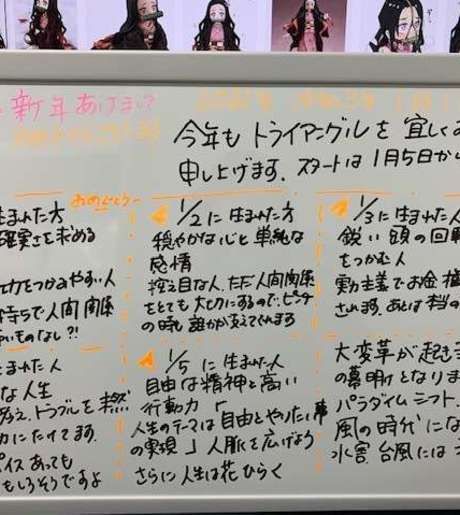 新年あけまして
今年もトライアングルを宜しくお
申し上げます。スタートは1月5日から
おめでとう
生まれた方
確実さを求める
力をつかみやすい人
持ちで人間関係
いものなし?!
1/2に生まれた方
穏やかな心と単純な
感情
控え目な人、ただ人間関係
をとても大切にするので、ピンチ
の時も誰かが支えてくれます
1/3に生まれた人
鋭い頭の回転
をつかむ人
動主義でお金、権
されます。あとは本当の
生まれた人
な人生
トラブルを未然
力にたけてます。
パイスあっても
もしろそうですよ
1/5に生まれた人
自由な精神と高い
行動力「
人生のテーマは自由とやりたい事
の実現」人脈を広げよう
さらに人生は花ひらく
大変革が起き
の幕明けとなりま
パラダイムシフト、
風の時代にな
水害、台風には